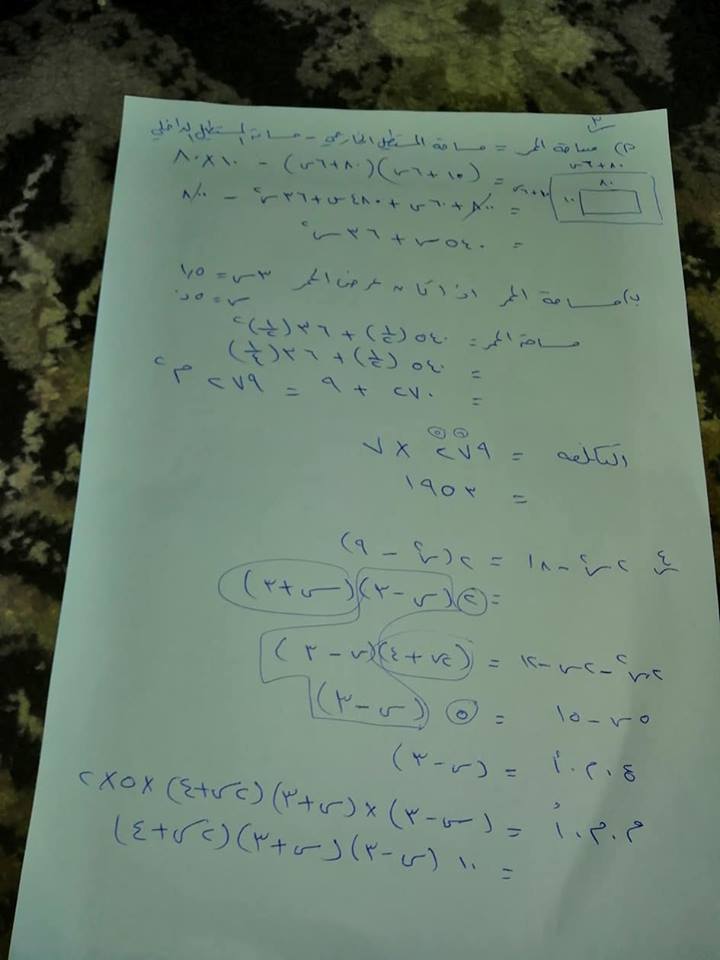 ٣
٢) مساحة الممر = مساحة المستطيل الخارجي - مساحة المستطيل الداخلي
= (١٠ + ٦س)(٨٠ + ٦س) - ١٠ × ٨٠
٨٠ + ٦س
٨٠
١٠
= ٨٠٠ + ٦٠س + ٤٨٠س + ٣٦س٢ - ٨٠٠
= ٥٤٠س + ٣٦س٢
ب) مساحة الممر اذا كان عرض الممر ٣س = ١,٥
س = ٠,٥
مساحة الممر = ٥٤٠(١/٢) + ٣٦(١/٢)٢
= ٥٤٠(١/٢) + ٣٦(١/٤)
= ٢٧٠ + ٩ = ٢٧٩ م٢
التكلفه = ٢٧٩ × ٧
= ١٩٥٣
٤ ٢س٢ - ١٨ = ٢(س٢ - ٩)
= ٢(س - ٣)(س + ٣)
٢س٢ - ٢س - ١٢ = (٢س + ٤)(س - ٣)
٥س - ١٥ = ٥(س - ٣)
ع.م.أ = (س - ٣)
م.م.أ = (س - ٣) × (س + ٣)(٢س + ٤) × ٥ × ٢
= ١٠(س - ٣)(س + ٣)(٢س + ٤)